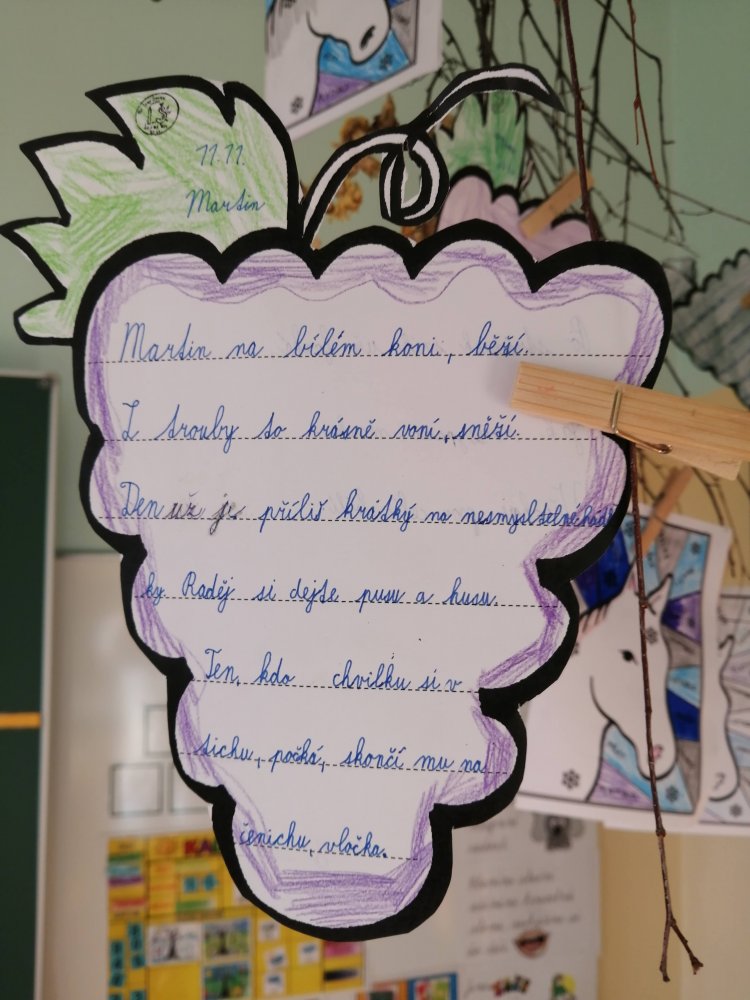 11.11.
Martin
Martin na bílém koni, běží.
Z trouby to krásně voní, sněží.
Den už je příliš krátký na nesmyslelné hádk
ky Raděj si dejte pusu a husu.
Ten, kdo chvilku si v
tichu, počká, skončí mu na
čenichu, vločka.